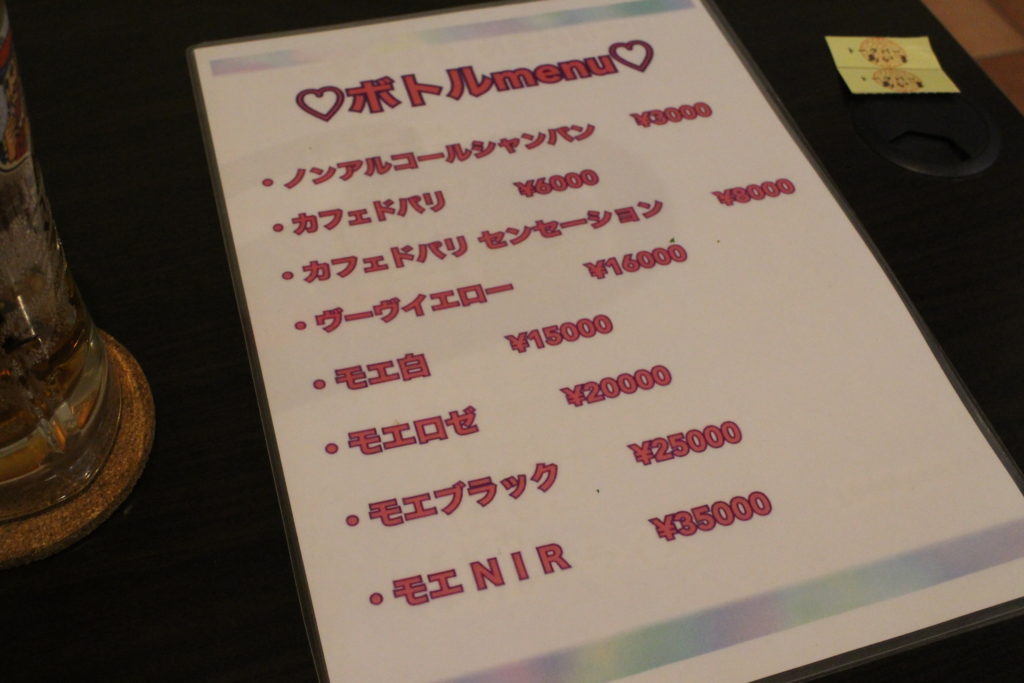 ♡ボトルmenu♡
・ノンアルコールシャンパン ¥5000
・カフェドパリ ¥6000
・カフェドパリ センセーション ¥8000
・ヴーヴイエロー ¥16000
・モエ白 ¥15000
・モエロゼ ¥20000
・モエブラック ¥25000
・モエNIR ¥35000